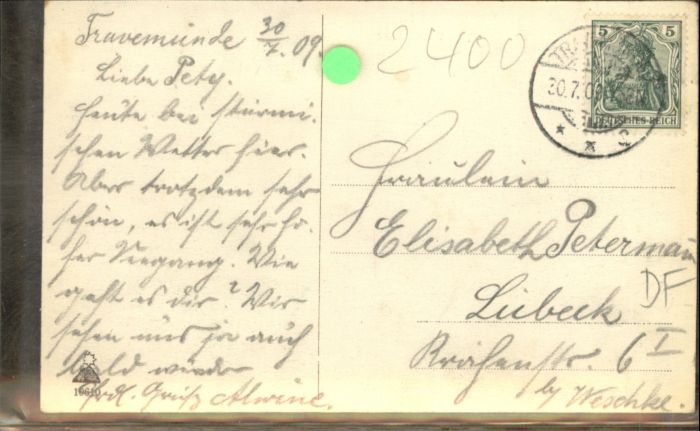 Travemünde 30/7.09.
Liebe Pety.
Heute bei stürmi-
schen Wetter hier.
Aber trotzdem sehr
schön, es ist sehr ho-
her Seegang. Wie
geht es dir? Wir
sehen uns ja auch
bald wieder
Hrzl. Gruß Alwine.
10610
2400
5 5
DEUTSCHES REICH
30.7.09
Fräulein
Elisabeth Petermann
Lübeck
6 I
by Weschke.
DF